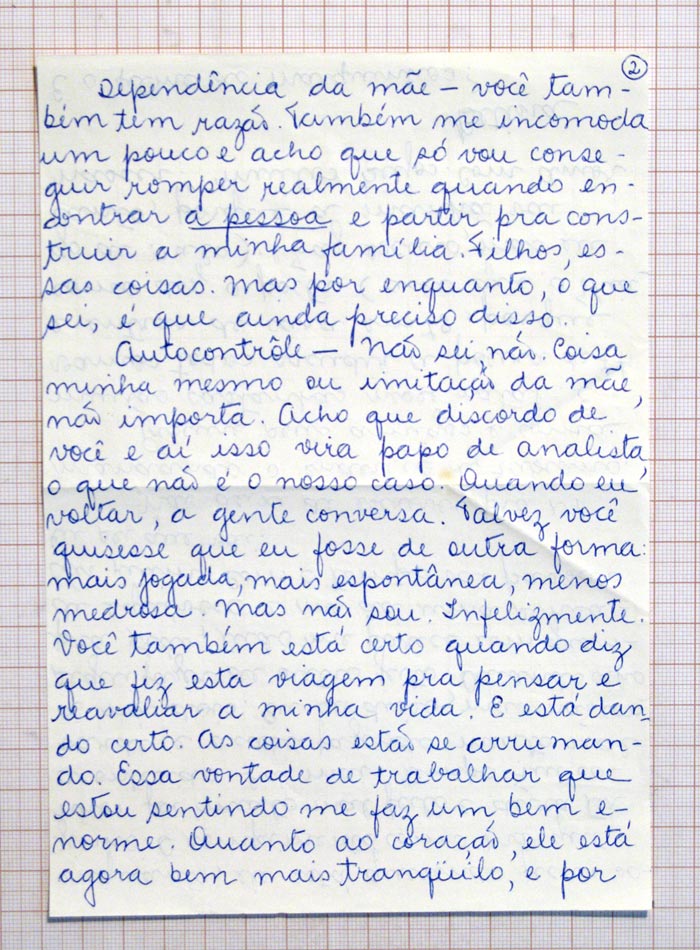 2
Dependência da mãe – você tam-
bém tem razão. Também me incomoda
um pouco e acho que só vou conse-
guir romper realmente quando en-
contrar a pessoa e partir pra cons-
truir a minha família. Filhos, es-
sas coisas. Mas por enquanto, o que
sei, é que ainda preciso disso.
Autocontrôle – Não sei não. Coisa
minha mesmo ou imitação da mãe,
não importa. Acho que discordo de
você e aí isso vira papo de analista,
o que não é o nosso caso. Quando eu
voltar, a gente conversa. Talvez você
quisesse que eu fosse de outra forma:
mais jogada, mais espontânea, menos
medrosa. Mas não sou. Infelizmente.
Você também está certo quando diz
que fiz esta viagem pra pensar e
reavaliar a minha vida. E está dan-
do certo. As coisas estão se arruman-
do. Essa vontade de trabalhar que
estou sentindo me faz um bem e-
norme. Quanto ao coração, ele está
agora bem mais tranqüilo, e por